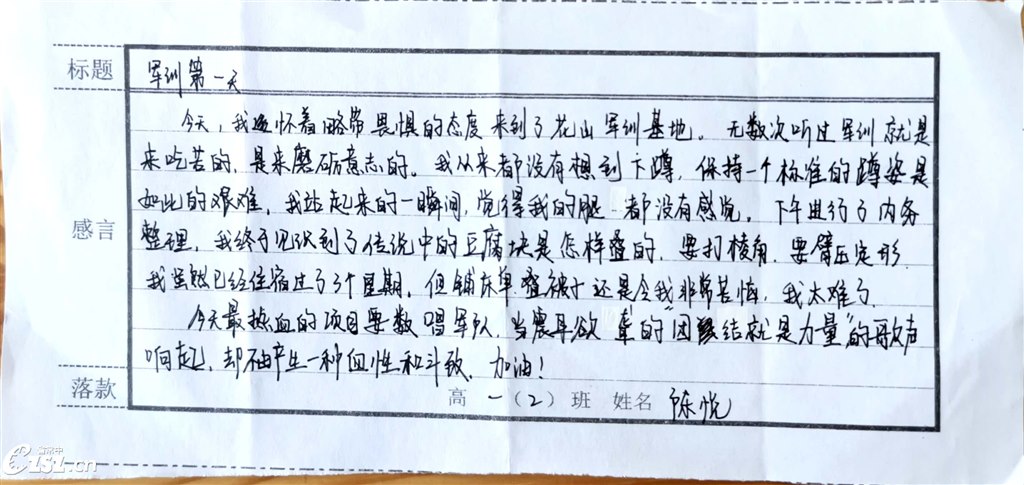 标题
军训第一天
今天，我怀着略带畏惧的态度来到了花山军训基地。无数次听过军训就是
来吃苦的，是来磨砺意志的。我从来都没有想到下蹲，保持一个标准的蹲姿是
如此的艰难，我站起来的一瞬间，觉得我的腿 都没有感觉。下午进行了内务
感言
整理，我终于见识到了传说中的豆腐块是怎样叠的，要打棱角，要臂压定形，
我虽然已经住宿过了3个星期，但铺床单叠被子还是令我非常苦恼，我太难了。
今天最热血的项目要数唱军歌，当震耳欲聋的“团结就是力量”的歌声
响起，却油产生一种血性和斗致，加油！
落款
高一（2）班 姓名 陈悦
e151.cn